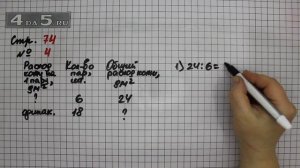 4DA5.RU
Стр. 74
№ 4
Расход кожи на 1 пару, дм²
Кол-во пар, шт.
Общий расход кожи, дм²
? 6 24
одинак. 18 ?
1) 24:6=